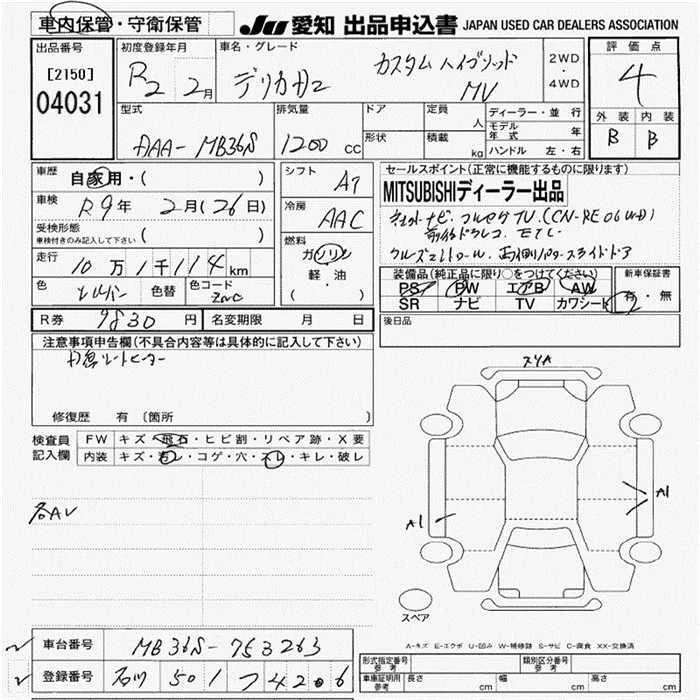 車内保管・守衛保管 JU 愛知 出品申込書 JAPAN USED CAR DEALERS ASSOCIATION
出品番号 初度登録年月 車名・グレード 評価点
[2150] R2 2月 デリカD2 カスタム ハイブリッド MV 2WD・4WD 4
04031
型式 排気量 ドア 定員 人 ディーラー・並行 外装 内装
AAA-MB36S 1200 cc 形状 積載 kg モデル年式 年 B B
ハンドル 左・右
車歴 自家用・( ) シフト AT セールスポイント(正常に機能するものに限ります)
車検 R9年 2月(26日) 冷房 AAC MITSUBISHIディーラー出品
受検形態 車検付きのみ記入して下さい ( ) 燃料 ガソリン 軽・油 ( )
ナビ フルセグTV(CN-RE06WD)
前後ドラレコ ETC
クルーズコントロール 両側パワースライドドア
走行 10万1千114km
色 シルバー 色替 色コード ZNC
装備品(純正品に限り○をつけてください) 新車保証書
PS PW エアB AW 有・無
SR ナビ TV カワシート
R券 9830円 名変期限 月 日 後日品
注意事項申告欄(不具合内容等は具体的に記入して下さい)
シートヒーター
修復歴 有 〔箇所 〕
検査員記入欄 FW キズ・飛石・ヒビ割・リペア跡・X要
内装 キズ・汚レ・コゲ・穴・スレ・キレ・破レ
スリA
各AU
A1 A1
スペア
A-キズ E-エクボ U-凹み W-補修跡 S-サビ C-腐食 XX-交換済
車台番号 MB36S-753263
登録番号 石川 501 つ 4206
型式指定番号 参考 類別区分番号 参考
車庫証明用 参考 長さ cm 幅 cm 高さ cm